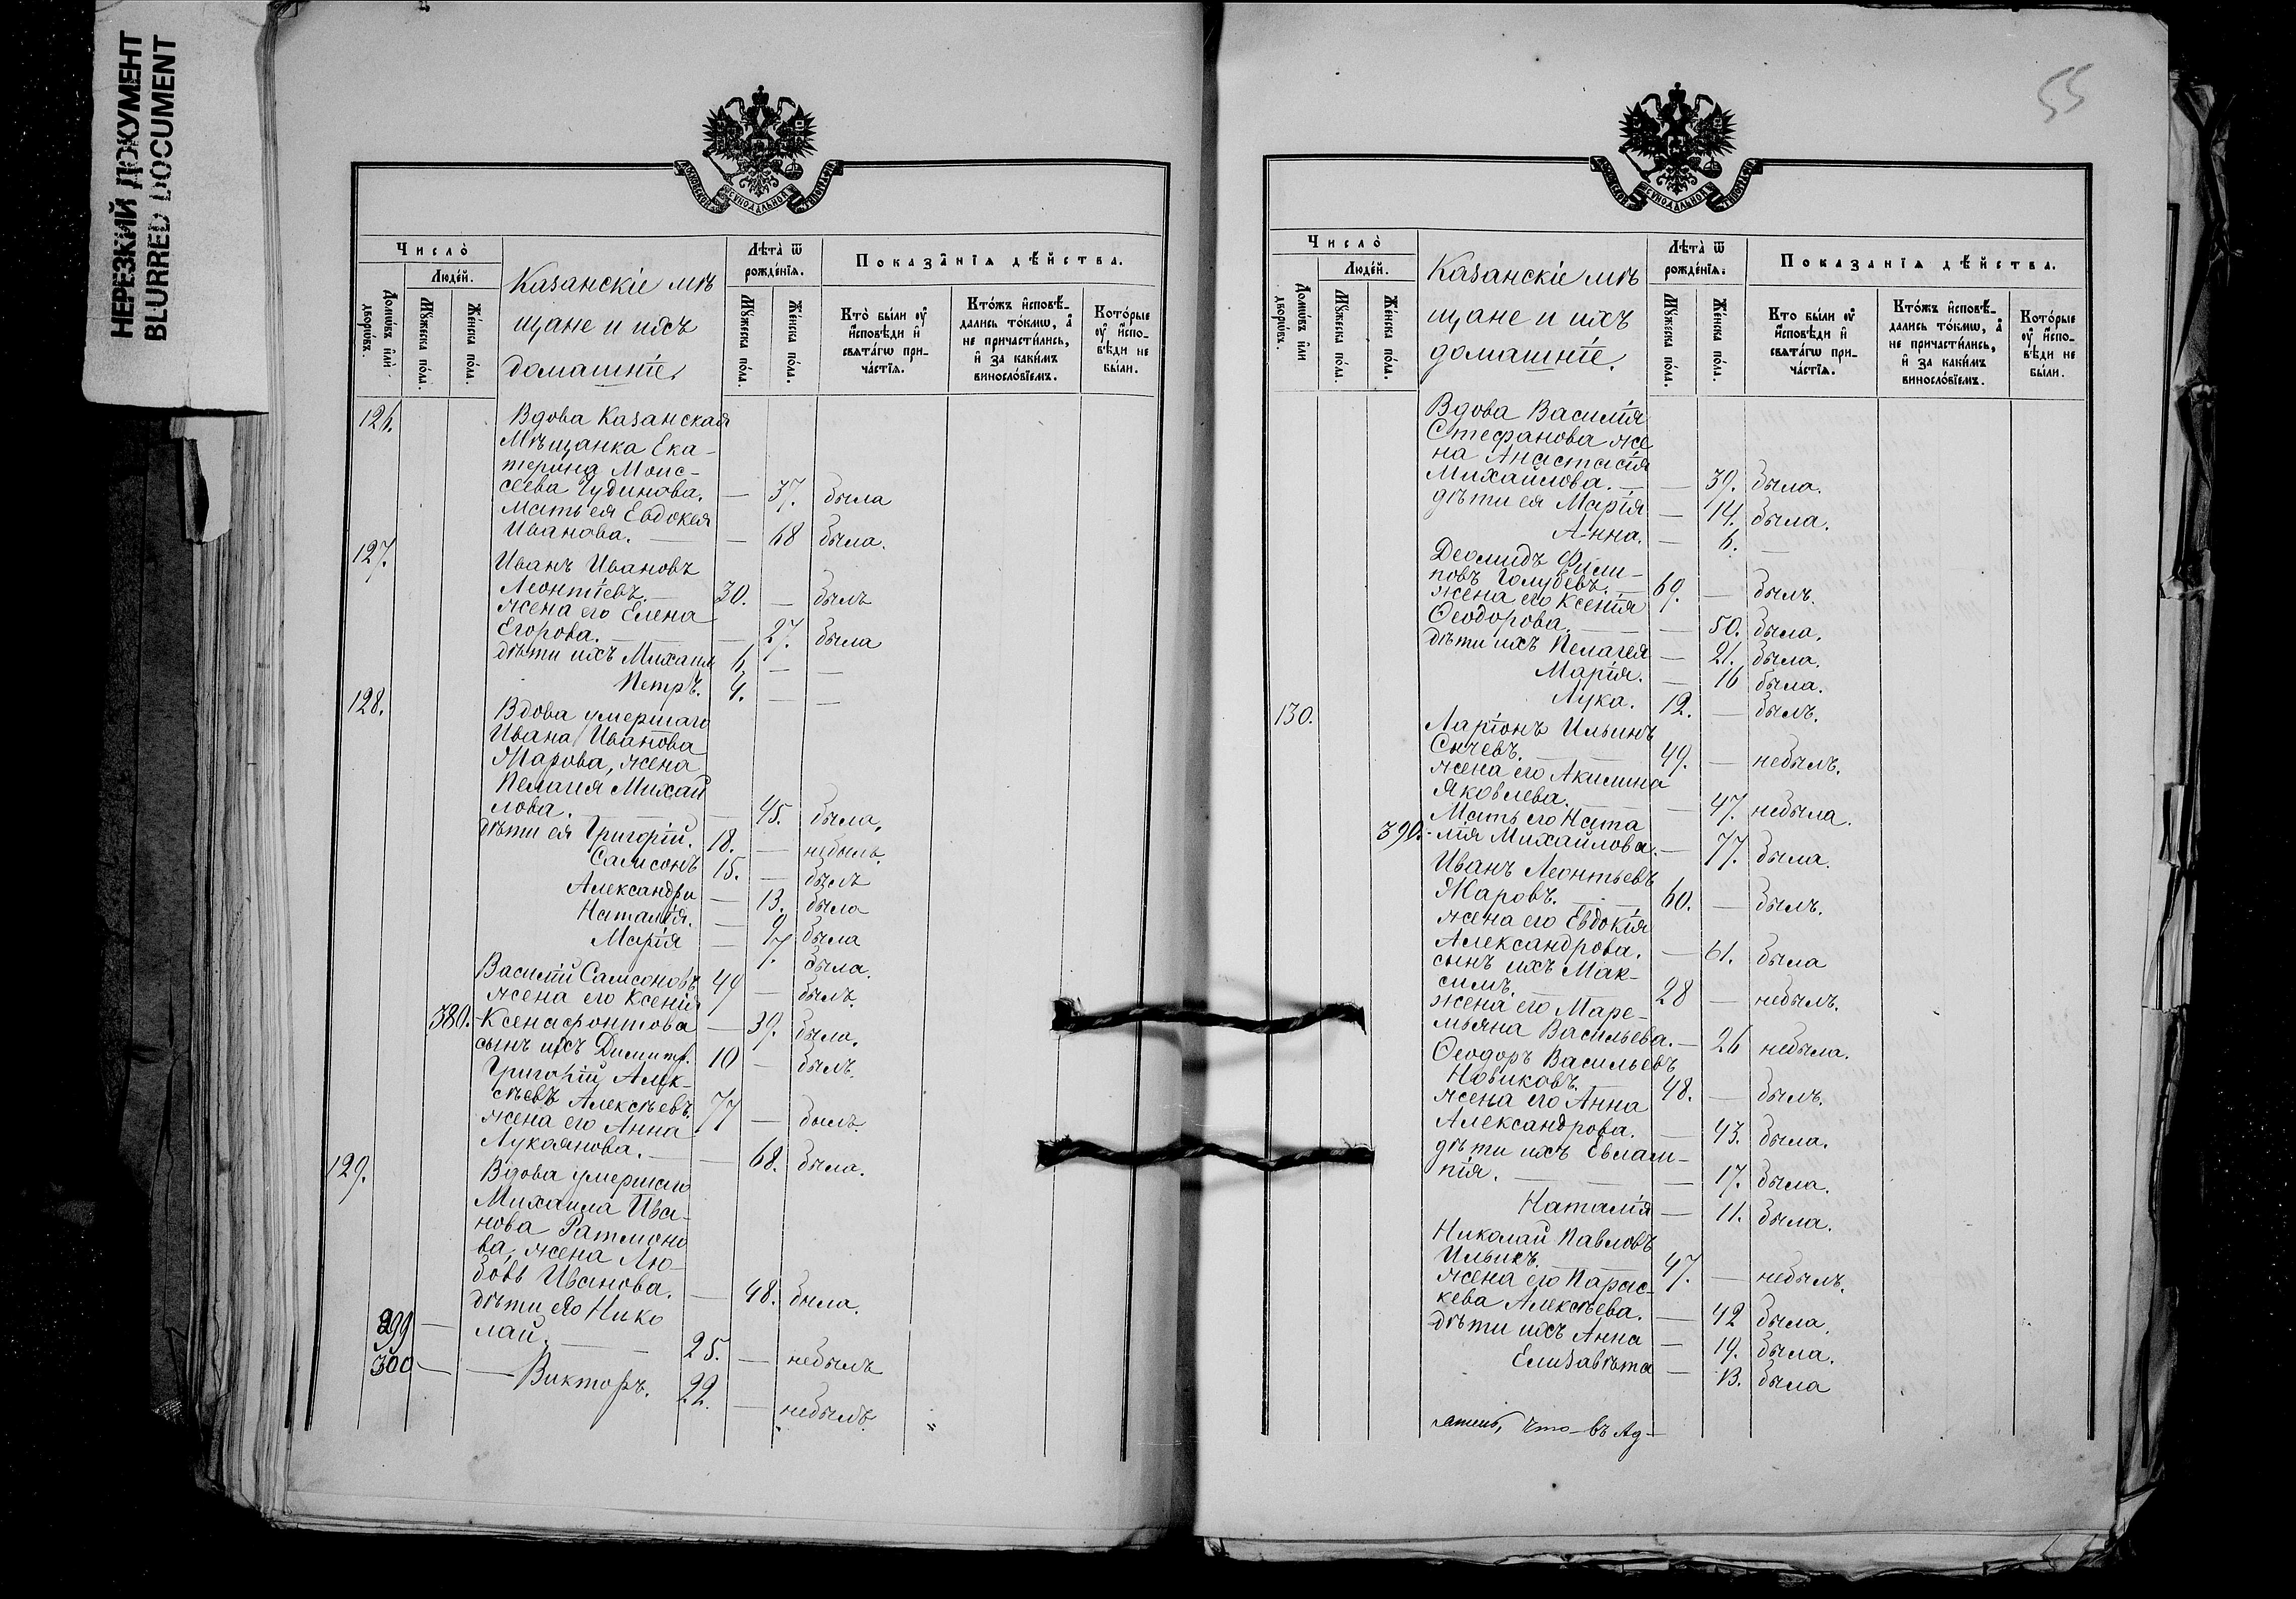 НЕРЕЗКИЙ ДОКУМЕНТ
BLURRED DOCUMENT
МОСКОВСКОЙ СѴНОДАЛЬНОЙ ТИПОГРАФІИ
Число̀
Людéй.
Домѡ́въ и҆лѝ дворѡ́въ.
Мꙋ́жеска по́ла.
Же́нска по́ла.
Казанскіе мѣ
щане и ихъ
домашніе.
Лѣта̀ ѿ рожде́нїѧ.
Мꙋ́жеска по́ла.
Же́нска по́ла.
Показа̑нїѧ дѣ́йства.
Кто̀ бы́ли ᲂу҆ и҆сповѣди и҆ свѧта́гѡ причáстїѧ.
Кто́жъ и҆сповѣ́дались то́кмѡ, а҆ не причасти́лись, и҆ за каки́мъ винослóвїемъ.
Кото́рые ᲂу҆ и҆сповѣди не бы́ли.
126. Вдова Казанская
Мѣщанка Ека-
терина Моис-
сеева Чудинова. — 37. была
Мать ея Евдокея
Иванова. — — 68 была.
127. Иванъ Ивановъ
Леонтіевъ. — 30. — былъ
жена его Елена
Егорова. — — 27. была
дѣти ихъ Михаил 6, — —
Петръ. 4. — —
128. Вдова умершаго
Ивана Иванова
Марова, жена
Пелагия Михай
лова. — — 45. была,
дѣти ея Григорій. 18. — небылъ.
Самсонъ 15. — былъ
Александра — 13. была
Наталія. — 9 была
Марія — 7. была.
Василій Самсоновъ 49 — былъ.
жена его Ксенія
380. -Ксенафонтова — 39. была,
сынъ ихъ Димитр. 10 — былъ.
Григорій Алек-
сѣевъ Алексѣевъ. 77 — былъ.
жена его Анна
Лукоянова. — — 68. была.
129. Вдова умершаго
Михаила Ива-
нова Ратмоно
ва, жена Лю-
бовь Иванова. — 48. была.
дѣти ея Нико
299 — лай. — — 25. — небылъ
300 — — Викторъ. 22. — небылъ.
55
МОСКОВСКОЙ СѴНОДАЛЬНОЙ ТИПОГРАФІИ
Число̀
Людéй.
Домѡ́въ и҆лѝ дворѡ́въ.
Мꙋ́жеска по́ла.
Же́нска по́ла.
Казанскіе мѣ
щане и ихъ
домашніе.
Лѣта̀ ѿ рожде́нїѧ.
Мꙋ́жеска по́ла.
Же́нска по́ла.
Показа́нїѧ дѣ́йства.
Кто бы́ли ᲂу҆ и҆сповѣди и҆ свѧта́гѡ причáстїѧ.
Кто́жъ и҆сповѣ́дались то́кмѡ, а҆ не причасти́лись, и҆ за каки́мъ винослóвїемъ.
Кото́рые ᲂу҆ и҆сповѣди не бы́ли.
Вдова Василія
Стефанова же
на Анастасія
Михайлова. — — 39. была.
дѣти ея Марія — 14. была.
Анна. — 6. —
Деомидъ Фили-
повъ Голубевъ. — 69. — былъ.
жена его Ксенія
Ѳеодорова. — — 50. была,
дѣти ихъ Пелагея — 21. была.
Марія. — 16 была.
Лука. 12. — былъ.
130. Ларіонъ Ильинъ
Сычевъ. — 49. — небылъ.
жена его Акилина
Яковлева. — — 47. небыла.
Мать его Ната
390.-лія Михайлова. — 77. была.
Иванъ Леонтьевъ
Жаровъ. — 60. — былъ.
жена его Евдокія
Александрова. — 61. была
сынъ ихъ Мак-
симъ. — 28 — небылъ.
жена его Маре-
мьяна Васильева. — 26 небыла.
Ѳеодоръ Васильевъ
Новиковъ. — 48. — былъ.
жена его Анна
Александрова. — 43. была.
дѣти ихъ Евлам-
пія. — — 17. была.
Наталія — 11. была.
Николай Павловъ
Ильинъ. — 47. — небылъ.
жена его Парас-
кева Алексѣева. — 42 была.
дѣти ихъ Анна — 19. была.
Елизавѣта — 13. была
что въ Ад-